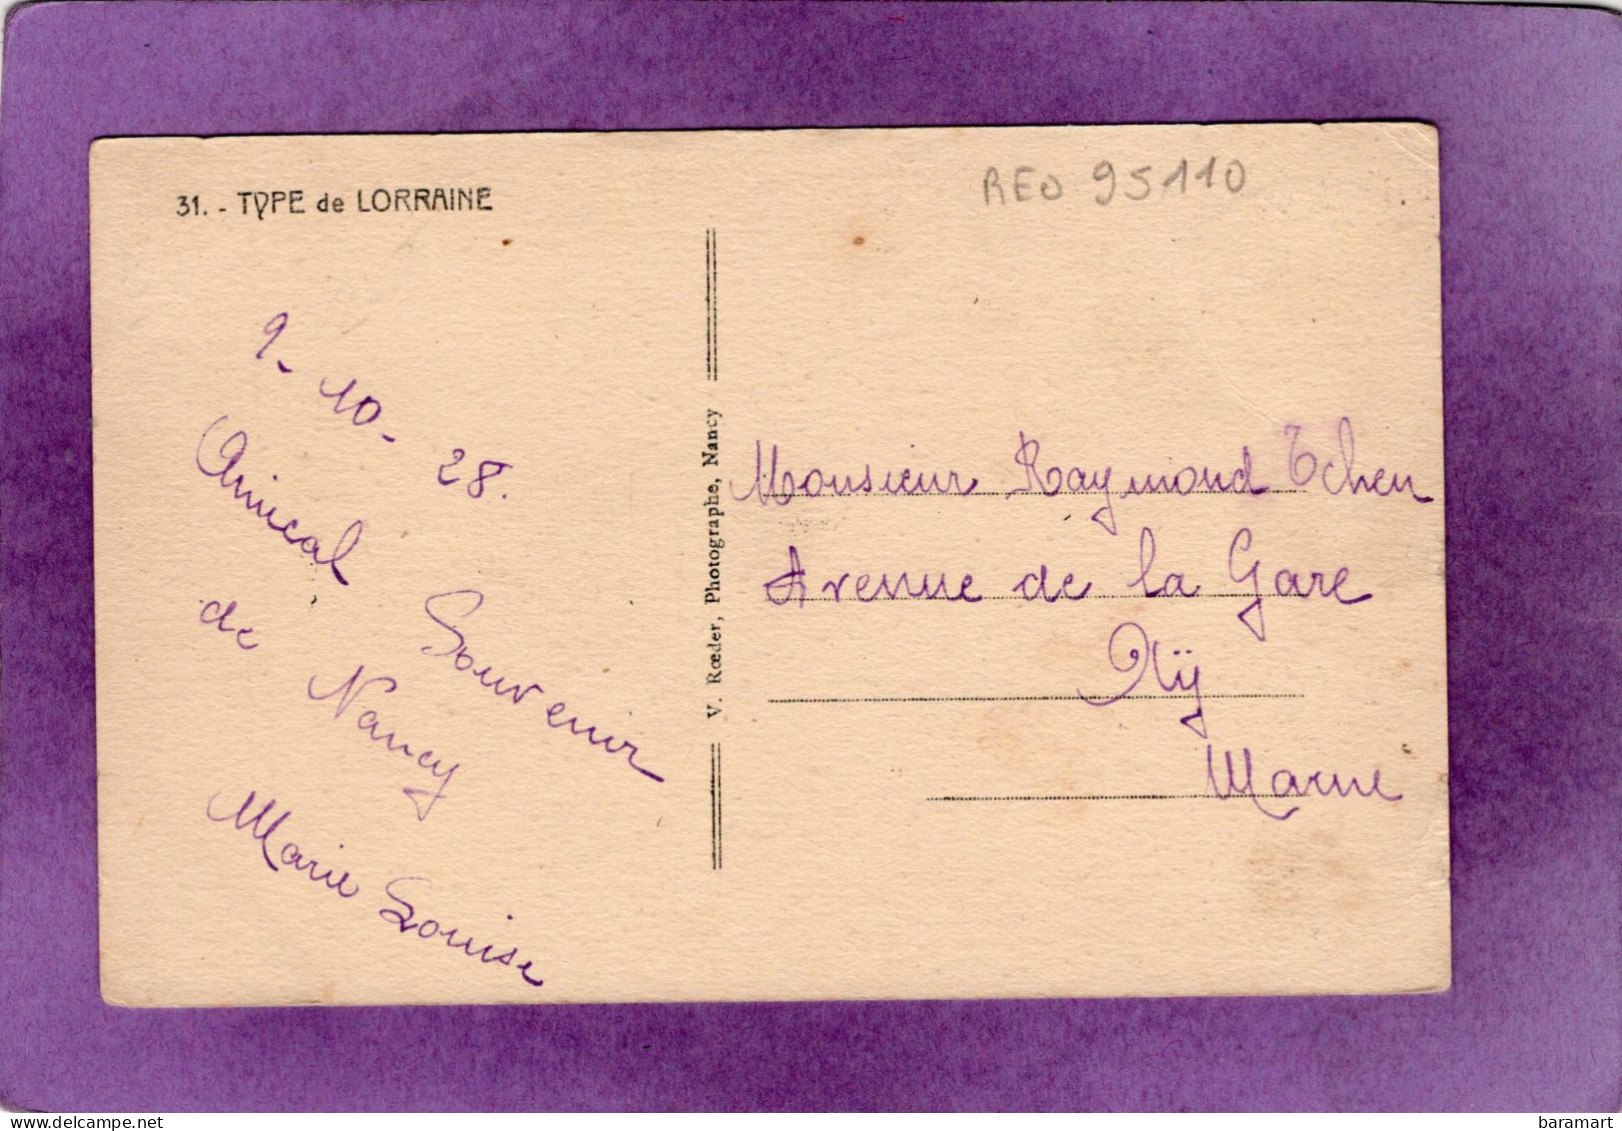 31. - TYPE de LORRAINE
REO 95110
9 - 10 - 28.
Amical Souvenir
de Nancy
Marie Louise
V. Rœder, Photographe, Nancy
Monsieur Raymond Tchen
Avenue de la Gare
Aÿ
Marne
baramart